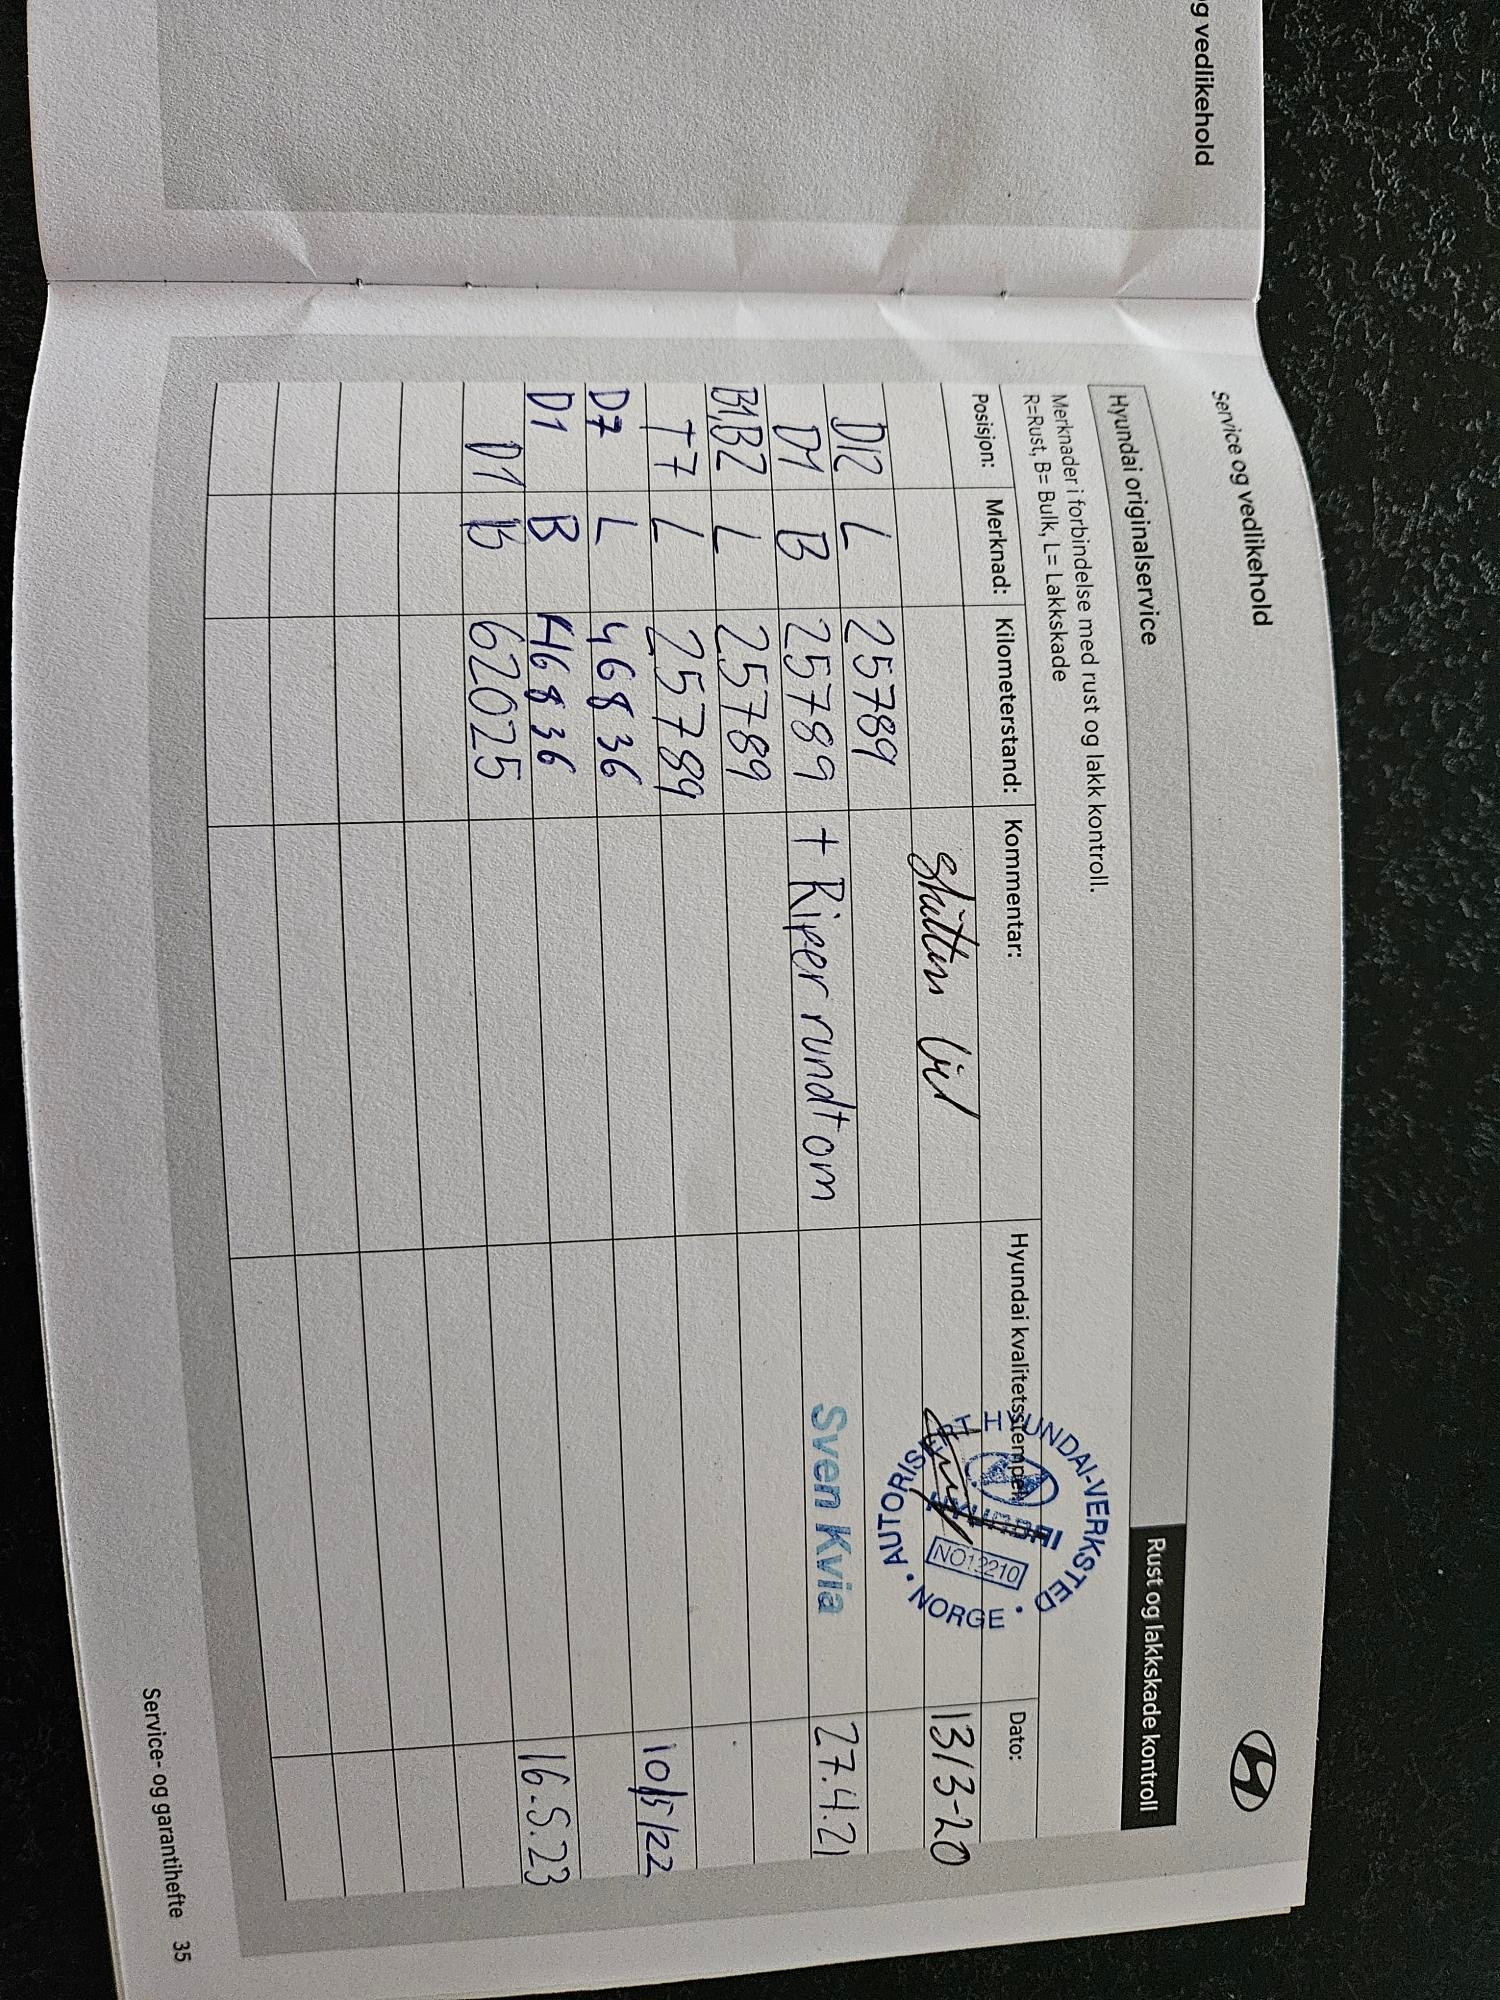 g vedlikehold
Service og vedlikehold
Hyundai originalservice Rust og lakkskade kontroll
Merknader i forbindelse med rust og lakk kontroll.
R=Rust, B= Bulk, L= Lakkskade
Posisjon: Merknad: Kilometerstand: Kommentar: Hyundai kvalitetsstempel Dato:
skitten bil 13/3-20
AUTORISERT HYUNDAI-VERKSTED • NORGE •
HYUNDAI
NO12210
D12 L 25789
D1 B 25789 + Riper rundtom Sven Kvia 27.4.21
B1,B2 L 25789
T7 L 25789
D7 L 46836 10/5/22
D1 B 46836
D1 B 62025 16.5.23
Service- og garantihefte 35